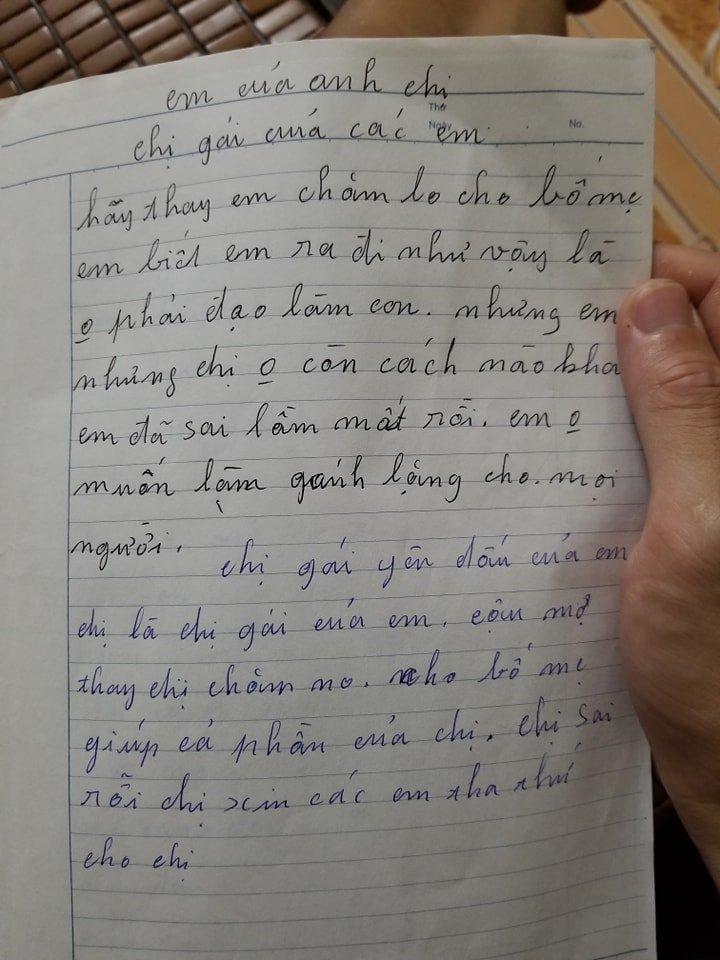 em của anh chị
Thứ
chị gái cuả các em
Ngày
No.
hãy thay em chăm lo cho bố mẹ
em biết em ra đi như vậy là
o phải đạo làm con. nhưng em
nhưng chị o còn cách nào kha
em đã sai lầm mất rồi. em o
muốn làm gánh lặng cho. mọi
người.
chị gái yên dấu của em
chị là chị gái của em. cậu mợ
thay chị chăm no. cho bố mẹ
giúp cả phần của chị. chị sai
rồi chị xin các em tha thứ
cho chị